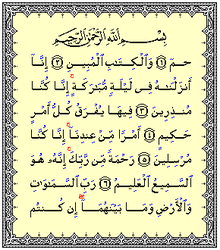 بِسْمِ اللَّهِ الرَّحْمَٰنِ الرَّحِيمِ
حمٓ ﴿١﴾ وَٱلْكِتَٰبِ ٱلْمُبِينِ ﴿٢﴾ إِنَّآ
أَنزَلْنَٰهُ فِى لَيْلَةٍ مُّبَٰرَكَةٍ ۚ إِنَّا كُنَّا
مُنذِرِينَ ﴿٣﴾ فِيهَا يُفْرَقُ كُلُّ أَمْرٍ
حَكِيمٍ ﴿٤﴾ أَمْرًا مِّنْ عِندِنَآ ۚ إِنَّا كُنَّا
مُرْسِلِينَ ﴿٥﴾ رَحْمَةً مِّن رَّبِّكَ ۚ إِنَّهُۥ هُوَ
ٱلسَّمِيعُ ٱلْعَلِيمُ ﴿٦﴾ رَبِّ ٱلسَّمَٰوَٰتِ
وَٱلْأَرْضِ وَمَا بَيْنَهُمَآ ۖ إِن كُنتُم